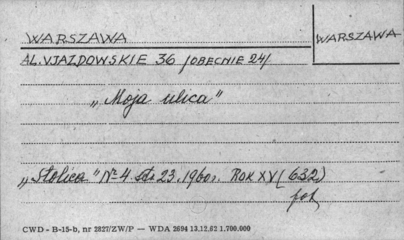 WARSZAWA
WARSZAWA
AL. UJAZDOWSKIE 36 /OBECNIE 24/
„Moja ulica"
„Stolica" Nr 4 str 23. 1960 r. ROK XV (632)
fot
CWD - B-15-b, nr 2827/ZW/P — WDA 2694 13.12.62 1.700.000